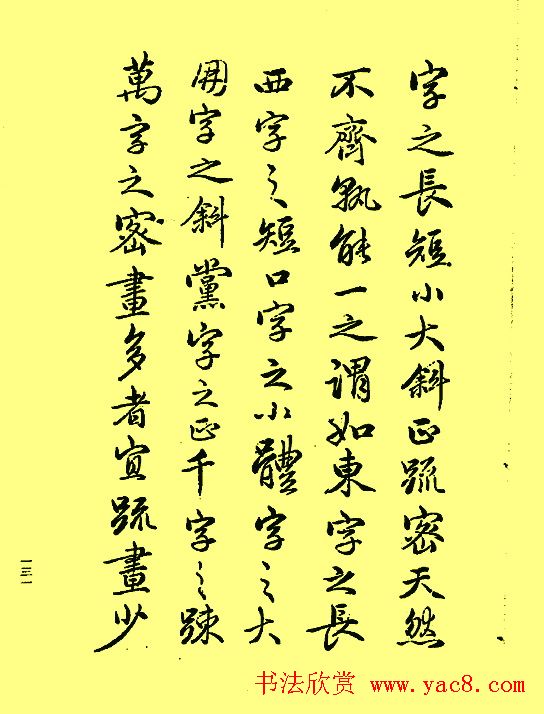 字之長短小大斜正䟽密天然
不齊孰能一之謂如東字之長
西字之短口字之小體字之大
朋字之斜黨字之正千字之踈
萬字之密畫多者宜䟽畫少
一三一
书法欣赏 www.yac8.com